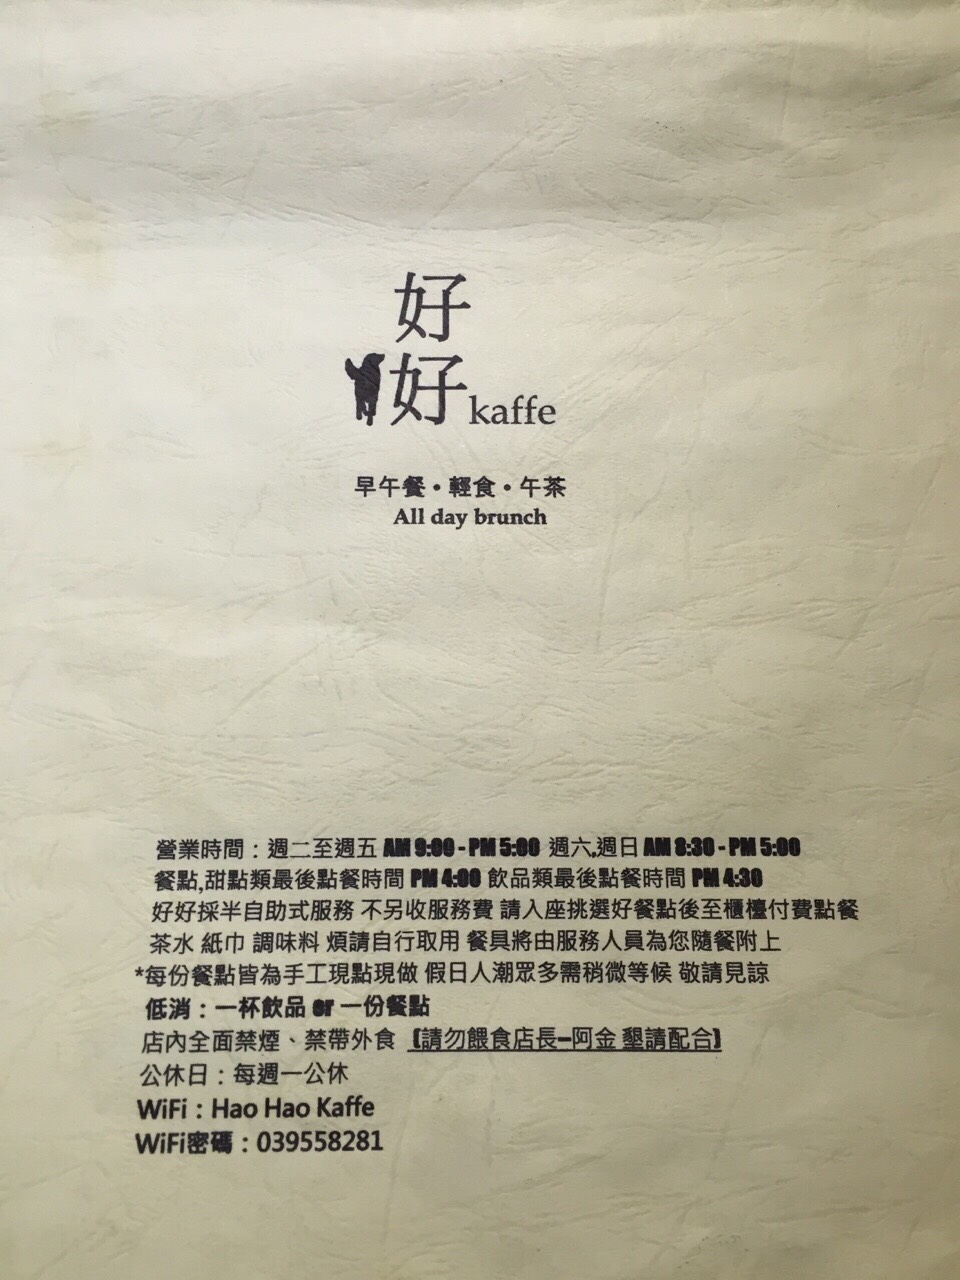 好
好kaffe
早午餐・輕食・午茶
All day brunch
營業時間：週二至週五 AM 9:00 - PM 5:00 週六,週日 AM 8:30 - PM 5:00
餐點,甜點類最後點餐時間 PM 4:00 飲品類最後點餐時間 PM 4:30
好好採半自助式服務 不另收服務費 請入座挑選好餐點後至櫃檯付費點餐
茶水 紙巾 調味料 煩請自行取用 餐具將由服務人員為您隨餐附上
*每份餐點皆為手工現點現做 假日人潮眾多需稍微等候 敬請見諒
低消：一杯飲品 or 一份餐點
店內全面禁煙、禁帶外食 (請勿餵食店長—阿金 懇請配合)
公休日：每週一公休
WiFi：Hao Hao Kaffe
WiFi密碼：039558281